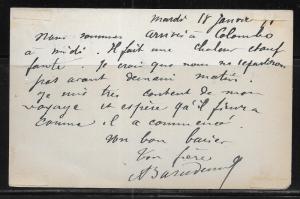 Mardi 18 Janvier
Nous sommes arrivés à Colombo
à midi. Il fait une chaleur étouf
fante. Je crois que nous ne repartirons
pas avant demain matin.
Je suis très content de mon
voyage et espère qu'il finira
comme il a commencé.
Un bon baiser
Ton frère